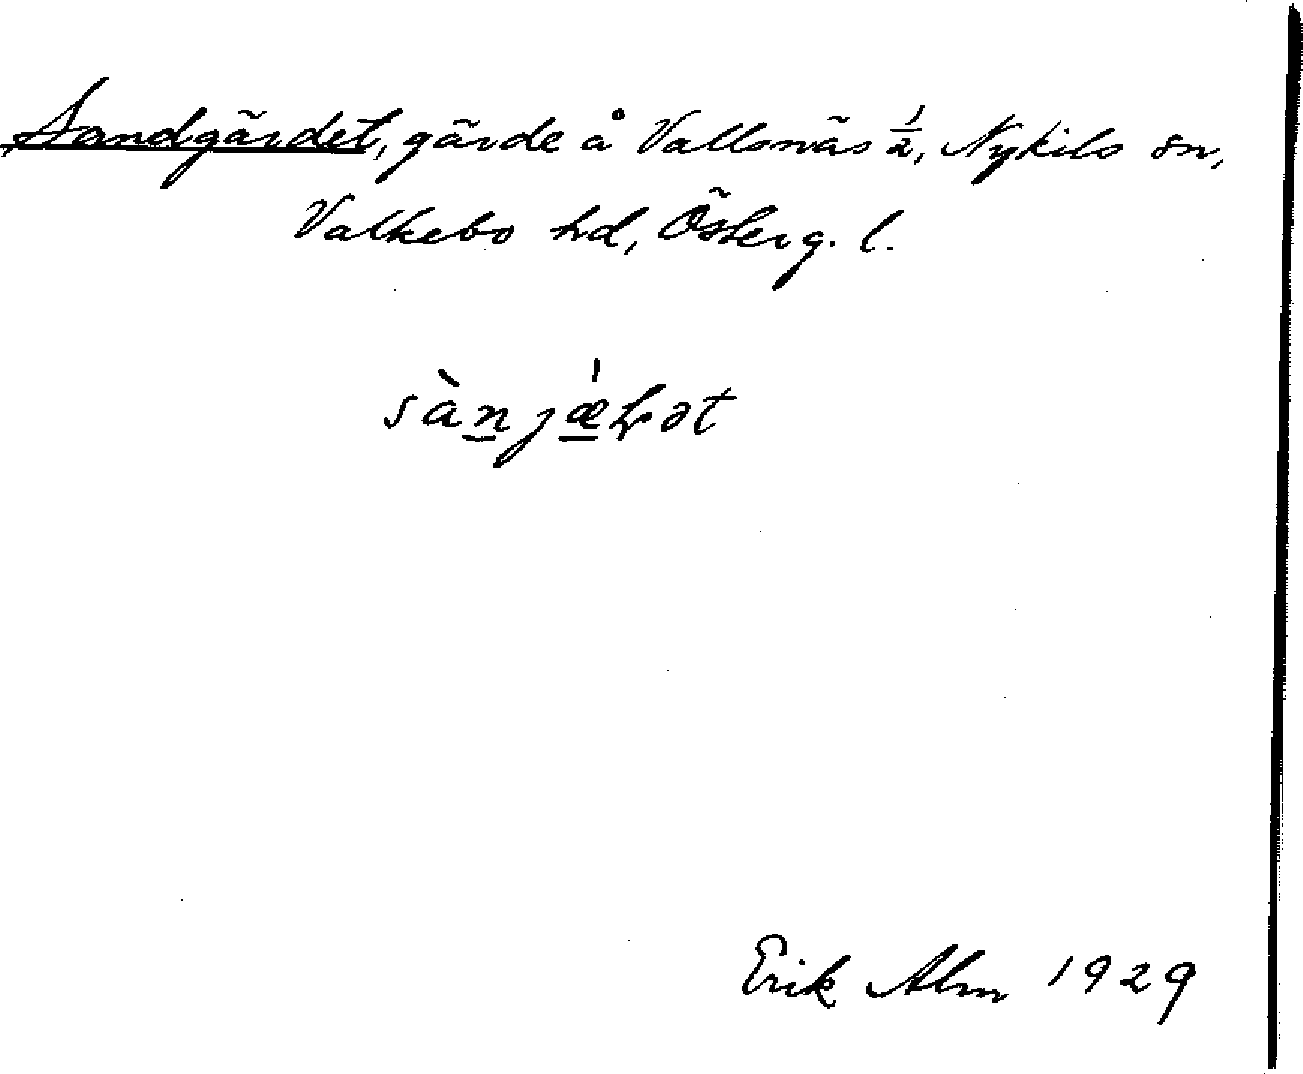 Sandgärdet, gärde å Vallsnäs 1/2, Nykils sn,
Valkebo hd, Österg. l.
sànjǽɖət
Erik Alm 1929